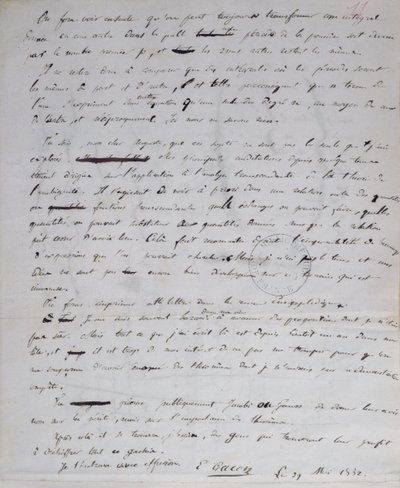 On fera voir ensuite qu'on peut toujours transformer une intégrale
donnée en une autre dans laquelle une période de la première soit divisée
par le nombre premier p, et les 2n-1 autres restent les mêmes.
Il ne restera donc à comparer que des intégrales où les périodes seront
les mêmes de part et d'autre, et telles par conséquent que n termes de
l'une s'expriment sans autre équation qu'une seule du degré n, au moyen de ceux
de l'autre, et réciproquement. Ici nous ne savons rien.
Tu sais, mon cher Auguste, que ces sujets ne sont pas les seuls que j'aie
explorés. Mes principales méditations depuis quelque temps
étaient dirigées sur l'application à l'analyse transcendante de la théorie de
l'ambiguité. Il s'agissait de voir a priori dans une relation entre des quantités
ou fonctions transcendantes quels échanges on pouvait faire, quelles
quantités on pouvait substituer aux quantités données sans que la relation
put cesser d'avoir lieu. Cela fait reconnaitre l'impossibilité de beaucoup
d'expressions que l'on pourrait chercher. Mais je n'ai pas le tems et mes
idées ne sont pas encore bien développées sur ce terrain qui est
immense.
Tu feras imprimer cette lettre dans la revue encyclopédique.
Je me suis souvent hasardé dans ma vie à avancer des propositions dont je n'étais
pas sûr. Mais tout ce que j'ai écrit là est depuis bientôt un an dans ma
tête, et il est trop de mon intérêt de ne pas me tromper pour qu'on
me soupçonne d'avoir énoncé des théorèmes dont je n'aurais pas la démonstration
complète.
Tu prieras publiquement Jacobi ou Gauss de donner leur avis
non sur la vérité, mais sur l'importance des théorèmes.
Après cela il se trouvera, j'espère, des gens qui trouveront leur profit
à déchiffrer tout ce gachis.
Je t'embrasse avec effusion. E Galois Le 29 Mai 1832.